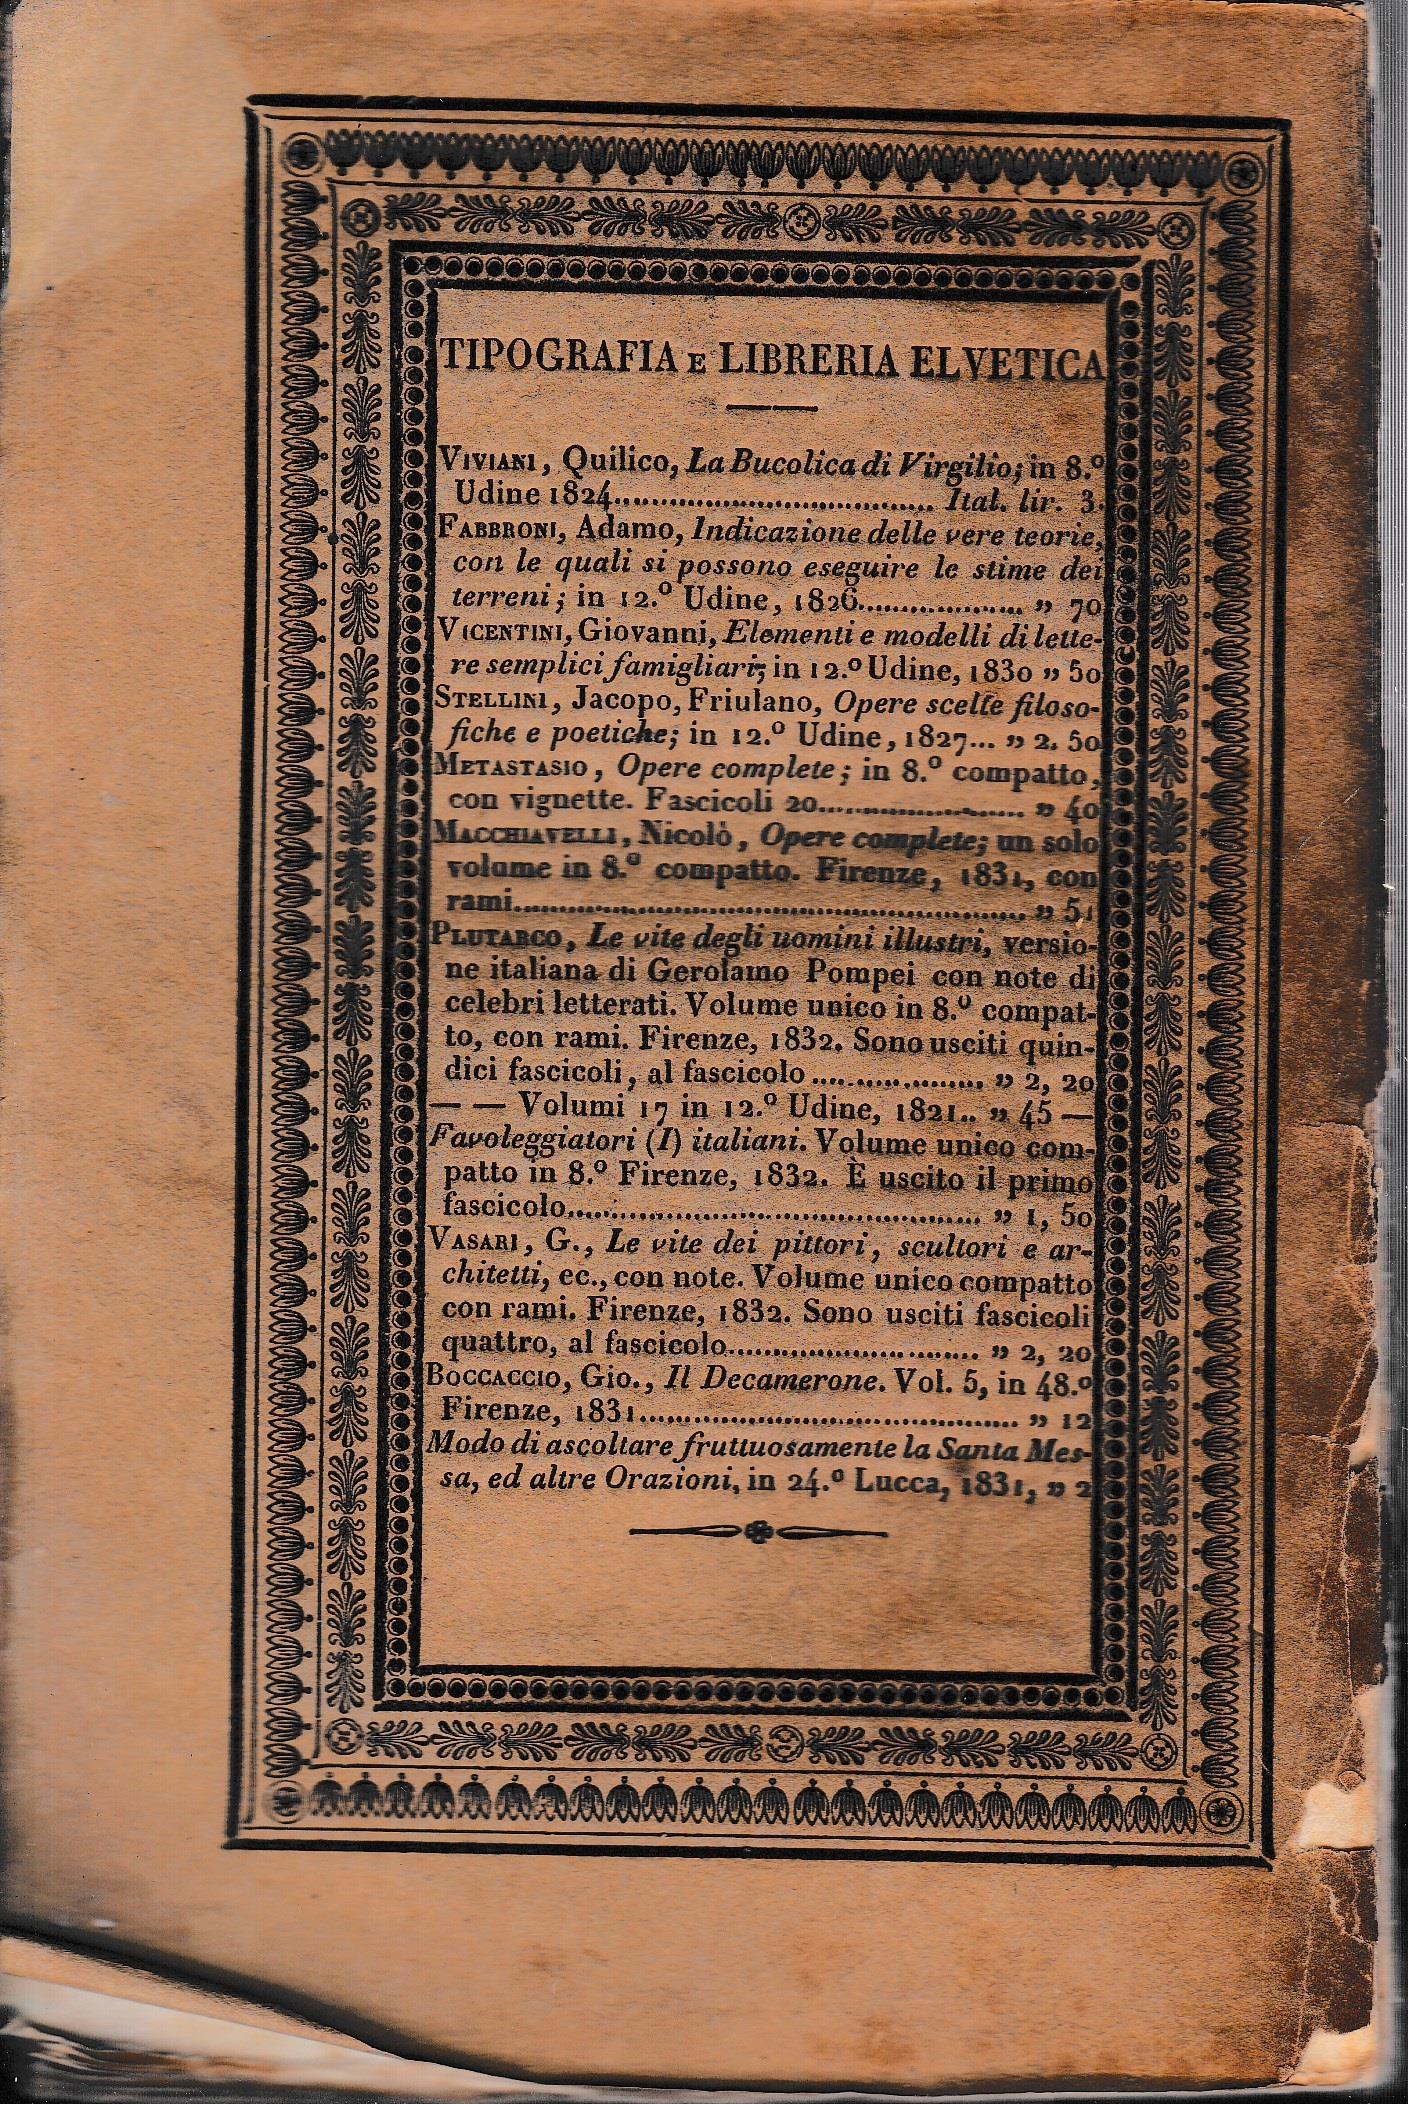 TIPOGRAFIA E LIBRERIA ELVETICA
VIVIANI, Quilico, La Bucolica di Virgilio; in 8.º
Udine 1824.................................. Ital. lir. 3.
FABBRONI, Adamo, Indicazione delle vere teorie,
con le quali si possono eseguire le stime dei
terreni; in 12.º Udine, 1826................... „ 70
VICENTINI, Giovanni, Elementi e modelli di lette-
re semplici famigliari; in 12.º Udine, 1830 „ 50
STELLINI, Jacopo, Friulano, Opere scelte filoso-
fiche e poetiche; in 12.º Udine, 1827... „ 2. 50
METASTASIO, Opere complete; in 8.º compatto,
con vignette. Fascicoli 20........................ „ 40
MACCHIAVELLI, Nicolò, Opere complete; un solo
volume in 8.º compatto. Firenze, 1831, con
rami........................................................ „ 51
PLUTARCO, Le vite degli uomini illustri, versio-
ne italiana di Gerolamo Pompei con note di
celebri letterati. Volume unico in 8.º compat-
to, con rami. Firenze, 1832. Sono usciti quin-
dici fascicoli, al fascicolo ................... „ 2, 20
— — Volumi 17 in 12.º Udine, 1821.. „ 45 —
Favoleggiatori (I) italiani. Volume unico com-
patto in 8.º Firenze, 1832. È uscito il primo
fascicolo............................................. „ 1, 50
VASARI, G., Le vite dei pittori, scultori e ar-
chitetti, ec., con note. Volume unico compatto
con rami. Firenze, 1832. Sono usciti fascicoli
quattro, al fascicolo........................... „ 2, 20
BOCCACCIO, Gio., Il Decamerone. Vol. 5, in 48.º
Firenze, 1831......................................... „ 12
Modo di ascoltare fruttuosamente la Santa Mes-
sa, ed altre Orazioni, in 24.º Lucca, 1831, „ 2